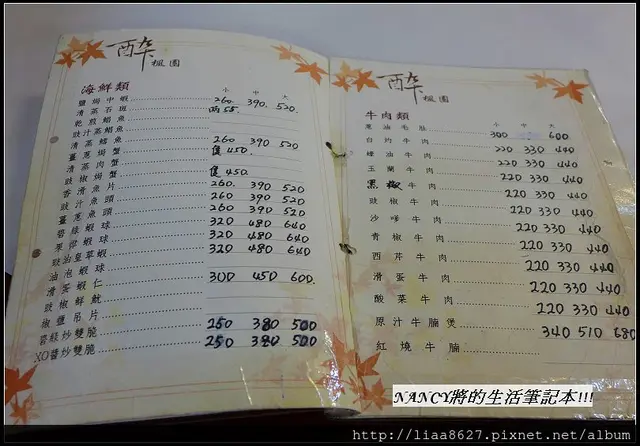 醉 楓園
海鮮類
小 中 大
鹽焗中蝦 260. 390. 520.
清蒸石斑 兩55.
乾煎鯧魚
豉汁蒸鯧魚
清蒸鱈魚 260 390 520
薑蔥焗蟹 隻450.
清蒸肉蟹
豉椒焗蟹 隻450
香滑魚片 260. 390 520
豉汁魚頭 260 390 520
薑蔥魚頭 260 390 520
碧綠蝦球 320 480 640
果律蝦球 320 480 640
豉油皇草蝦 320 480 640
油泡蝦球
滑蛋蝦仁 300 450 600.
豉椒鮮魷
椒鹽吊片
碧綠炒雙脆 250 380 500
XO醬炒雙脆 250 380 500
醉 楓園
牛肉類
小 中 大
蔥油毛肚 300 600
白灼牛肉 220 330 440
蠔油牛肉 220 330 440
玉蘭牛肉 220 330 440
黑椒牛肉 220 330 440
豉椒牛肉 220 330 440
沙嗲牛肉 220 330 440
青椒牛肉 220 330 440
西芹牛肉 220 330 440
滑蛋牛肉 220 330 440
酸菜牛肉 220 330 440
原汁牛腩煲 340 510 680
紅燒牛腩
NANCY將的生活筆記本!!!
http://liaa8627.pixnet.net/album